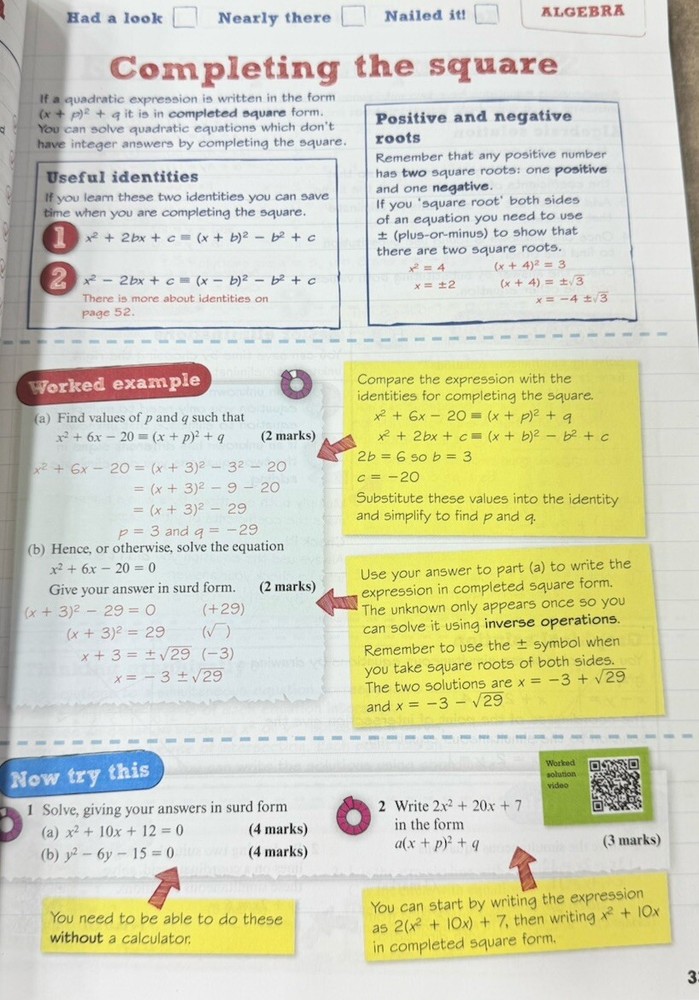 Had a look Nearly there Nailed it! ALGEBRA
Completing the square
If a quadratic expression is written in the form
(x + p)² + q it is in completed square form.
You can solve quadratic equations which don't
have integer answers by completing the square.
Useful identities
If you learn these two identities you can save
time when you are completing the square.
1 x² + 2bx + c ≡ (x + b)² − b² + c
2 x² − 2bx + c ≡ (x − b)² − b² + c
There is more about identities on
page 52.
Positive and negative
roots
Remember that any positive number
has two square roots: one positive
and one negative.
If you 'square root' both sides
of an equation you need to use
± (plus-or-minus) to show that
there are two square roots.
x² = 4 (x + 4)² = 3
x = ±2 (x + 4) = ±√3
x = −4 ±√3
Worked example
(a) Find values of p and q such that
x² + 6x − 20 ≡ (x + p)² + q (2 marks)
x² + 6x − 20 = (x + 3)² − 3² − 20
= (x + 3)² − 9 − 20
= (x + 3)² − 29
p = 3 and q = −29
(b) Hence, or otherwise, solve the equation
x² + 6x − 20 = 0
Give your answer in surd form. (2 marks)
(x + 3)² − 29 = 0 (+29)
(x + 3)² = 29 (√)
x + 3 = ±√29 (−3)
x = − 3 ±√29
Compare the expression with the
identities for completing the square.
x² + 6x − 20 ≡ (x + p)² + q
x² + 2bx + c ≡ (x + b)² − b² + c
2b = 6 so b = 3
c = −20
Substitute these values into the identity
and simplify to find p and q.
Use your answer to part (a) to write the
expression in completed square form.
The unknown only appears once so you
can solve it using inverse operations.
Remember to use the ± symbol when
you take square roots of both sides.
The two solutions are x = −3 + √29
and x = −3 − √29
Now try this
1 Solve, giving your answers in surd form
(a) x² + 10x + 12 = 0 (4 marks)
(b) y² − 6y − 15 = 0 (4 marks)
You need to be able to do these
without a calculator.
2 Write 2x² + 20x + 7
in the form
a(x + p)² + q (3 marks)
Worked
solution
video
You can start by writing the expression
as 2(x² + 10x) + 7, then writing x² + 10x
in completed square form.